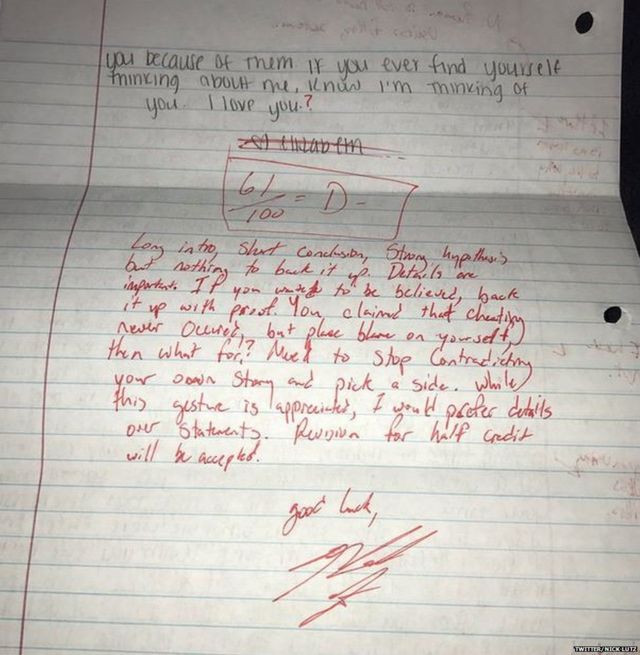 you because of them. If you ever find yourself
thinking about me, know I'm thinking of
you. I love you.?
Elizabeth
61/100 = D-
Long intro, short conclusion, Strong hypothesis
but nothing to back it up. Details are
important. If you want to be believed, back
it up with proof. You claimed that cheating
never occured, but place blame on yourself,
then what for? Need to stop contradicting
your own story and pick a side. While
this gesture is appreciated, I would prefer details
over statements. Revision for half credit
will be accepted.
good luck,
TWITTER/NICK LUTZ